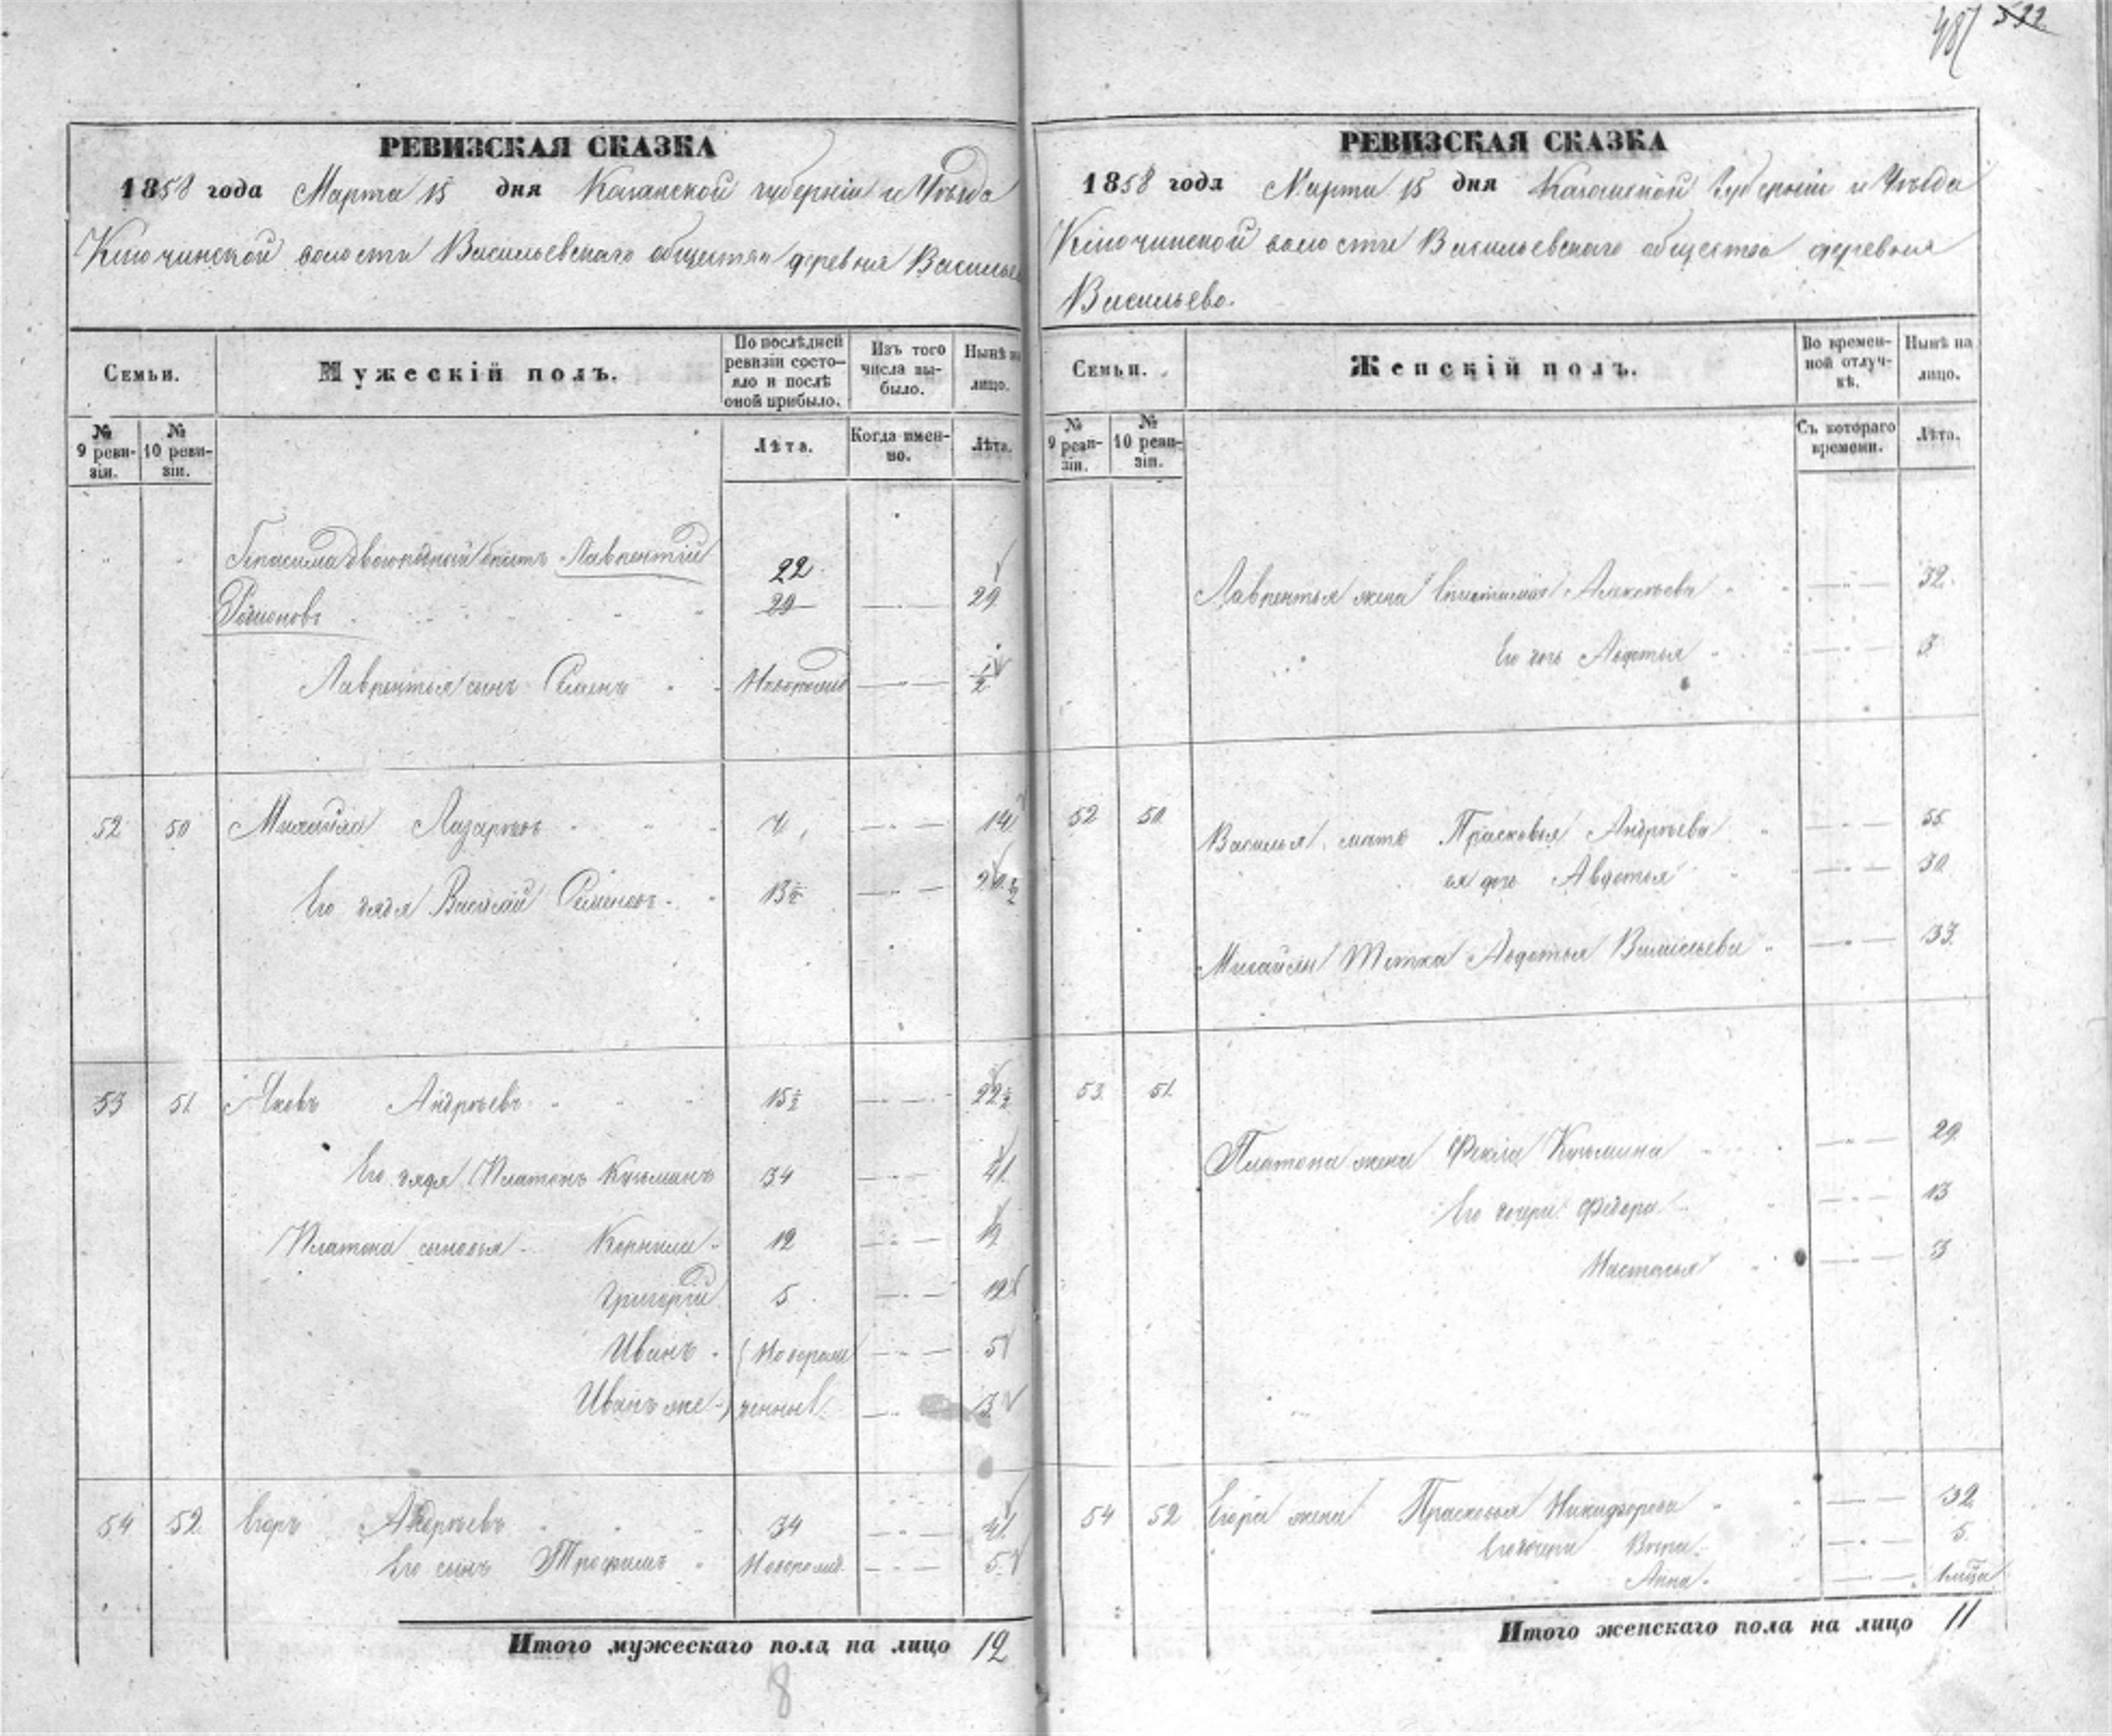 487 522
РЕВИЗСКАЯ СКАЗКА
1858 года Марта 15 дня Казанской губерніи и Уѣзда
Ключинской волости Васильевскаго общества деревня Василье
Семьи.
Мужескій полъ.
По послѣдней ревизіи состояло и послѣ оной прибыло.
Изъ того числа выбыло.
Нынѣ на лицо.
№ 9 ревизіи.
№ 10 ревизіи.
Лѣта.
Когда именно.
Лѣта.
Герасима двоюродный братъ Лаврентій 22
Родионовъ 20 29
Лаврентья сынъ Семенъ Новорожд 1/2
52 50 Михайла Лазаревъ 7 14
Его дядя Василий Семеновъ 13 1/2 20 1/2
53 51 Яковъ Андреевъ 15 1/2 22 1/2
Его дядя Платонъ Кузьминъ 34 41
Платона сыновья Корнила 12
Григорій 5 12
Иванъ Новорож 5
Иванъ же денные 3
54 52 Егоръ Андреевъ 34 41
Его сынъ Трофимъ Новорожд. 5
Итого мужескаго пола на лицо 12
8
РЕВИЗСКАЯ СКАЗКА
1858 года Марта 15 дня Казанской Губерніи и Уѣзда
Ключинской волости Васильевскаго общества деревня
Васильево.
Семьи.
Женскій полъ.
Во временной отлучкѣ.
Нынѣ на лицо.
№ 9 ревизіи.
№ 10 ревизіи.
Съ котораго времени.
Лѣта.
Лаврентья жена Алексѣева 32
Его дочь Авдотья 3
52 50 Василья мать Прасковья Андреева 55
ея дочь Авдотья 30
Михайлы тетка Авдотья Васильева 33
53 51
Платона жена Фекла Кузьмина 29
Его дочери Федора 13
Настасья 3
54 52 Егора жена Прасковья Никифорова 32
Его дочери 5
Анна
Итого женскаго пола на лицо 11